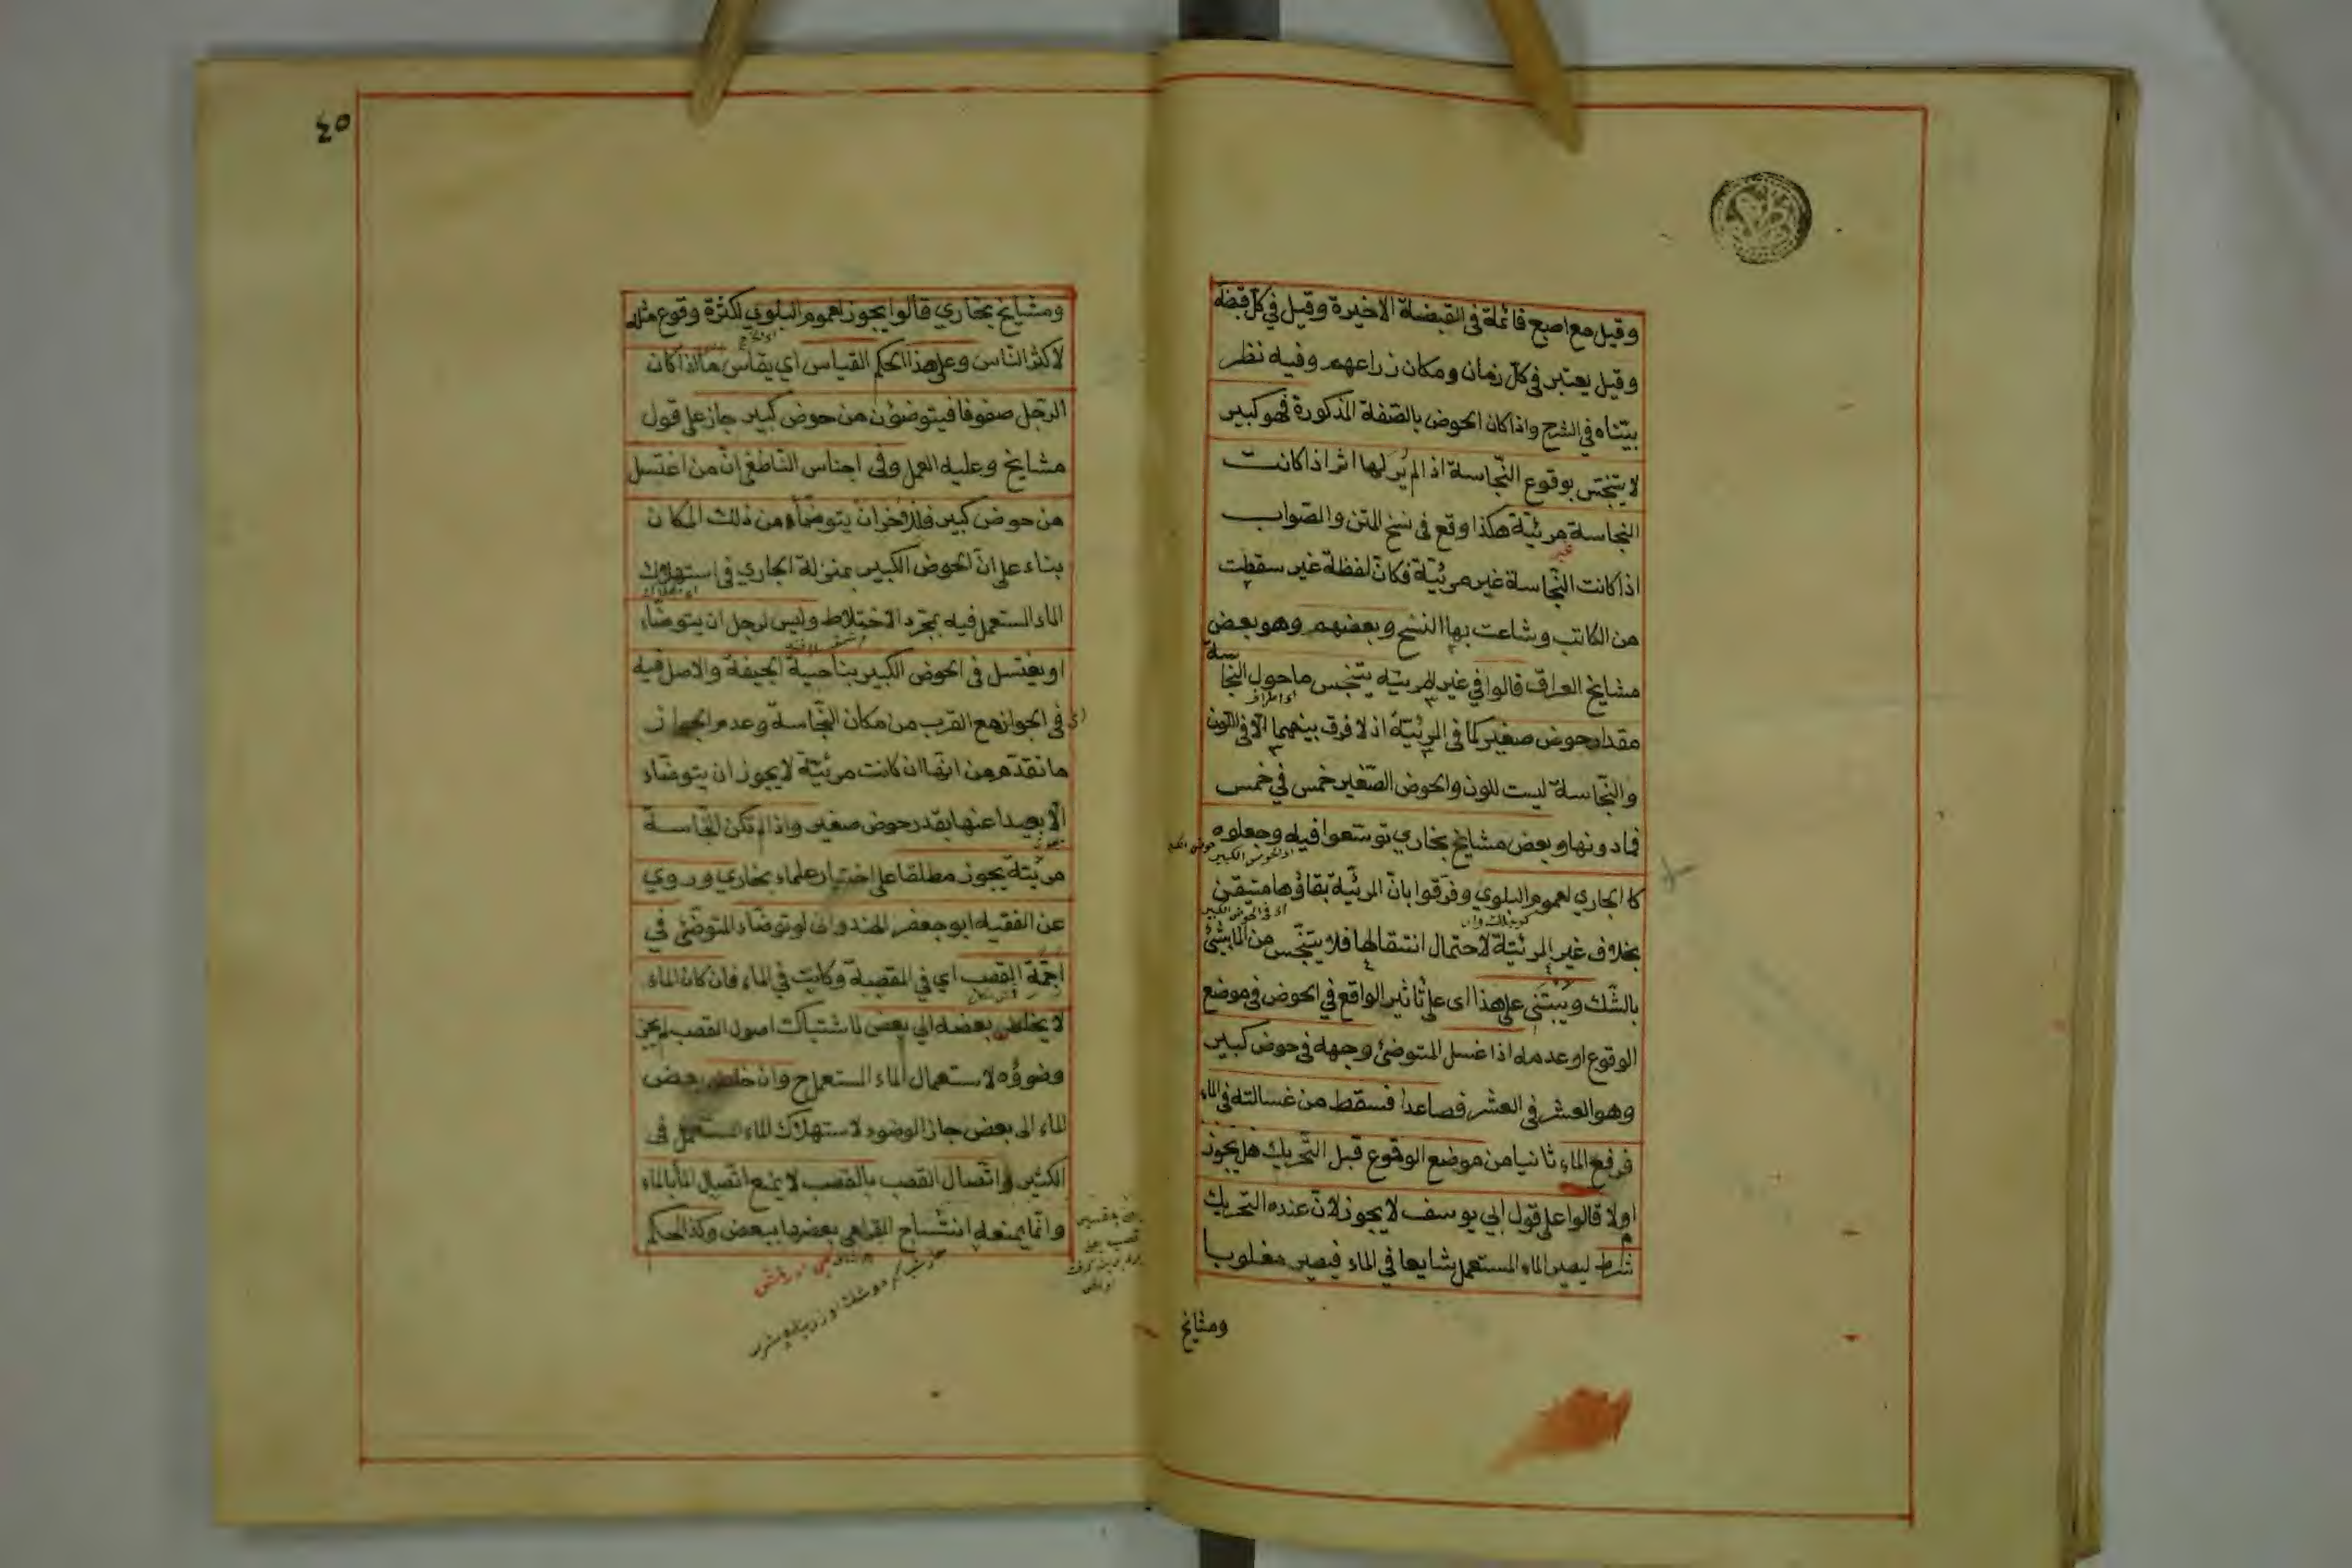 وقيل مع اصبع قائمة في القبضة الاخيرة وقيل في كل قبضة
وقيل يعتبر في كل زمان ومكان زراعهم وفيه نظر
بيّناه في الشرح واذا كان الحوض بالصّفة المذكورة فهو كبير
لا يتنجّس بوقوع النّجاسة اذا لم يُرَ لها اثر اذا كانت
النجاسة مرئيّة هكذا وقع في نسخ المتن والصّواب
غير
اذا كانت النّجاسة غير مرئيّة فكانّ لفظة غير سقطت
من الكاتب وشاعت بها النسخ وبعضهم وهو بعض
مشايخ العراق قالوا في غير المرئيّه يتنجّس ما حول النجاسة
مقدار حوض صغير كما في المرئيّة اذ لا فرق بينهما الّا في اللّون
والنّجاسة ليست للون والحوض الصّغير خمس في خمس
فما دونها وبعض مشايخ بخاري توسّعوا فيه وجعلوه
اي الحوض الكبير
كالجاري لعموم البلوي وفرّقوا بانّ المرئيّة بقاؤها متيقن
اي في الحوض الكبير
بخلاف غير المرئيّة لاحتمال انتقالها فلا يتنجّس من الماء شئ
بالشّك ويبتني على هذا اي على تاثير الواقع في الحوض في موضع
الوقوع او عدمه اذا غسل المتوضئ وجهه في حوض كبير
وهو العشر في العشر فصاعدا فسقط من غسالته في الماء
فرفع الماء ثانيا من موضع الوقوع قبل التّحريك هل يجوز
او لا قالوا على قول ابي يوسف لا يجوز لانّ عنده التحريك
شرط ليصير الماء المستعمل شايعا في الماء فيصير مغلوبا
ومشايخ
٤٥
ومشايخ بخاري قالوا يجوز لعموم البلوي لكثرة وقوع مثله
لاكثر النّاس وعلى هذا الحكم القياس اي يقاس ما اذا كان
الرّجل صفوفا فيتوضؤن من حوض كبير جاز على قول
مشايخ وعليه العمل وفي اجناس النّاطفي انّ من اغتسل
من حوض كبير فلاخر ان يتوضّأ من ذلك المكان
بناء على انّ الحوض الكبير بمنزلة الجاري في استهلاك
الماء المستعمل فيه بمجرّد الاختلاط وليس لرجل ان يتوضّاء
او يغتسل في الحوض الكبير بناحية الجيفة والاصل فيه
اي في الجواز مع القرب من مكان النّجاسة وعدم الجواز
ما تقدّم من انّها ان كانت مرئيّة لا يجوز ان يتوضّاء
الّا بعيدا عنها بقدر حوض صغير واذا لم تكن النّجاسة
مرئيّة يجوز مطلقا على اختيار علماء بخاري وروي
عن الفقيه ابو جعفر الهندواني لو توضّاء المتوضّئ في
اجمّة القصب اي في المقصبة وكانت في الماء فان كان الماء
لا يخلص بعضه الي بعض لاشتباك اصول القصب لم يجز
وضوؤه لاستعمال الماء المستعمل ح وان خلص بعض
الماء الى بعض جاز الوضوء لاستهلاك الماء المستعمل في
الكثير واتّصال القصب بالقصب لا يمنع اتّصال الماء بالماء
وانّما يمنعه انتساج القراهي بعضها ببعض وكذا الحكم